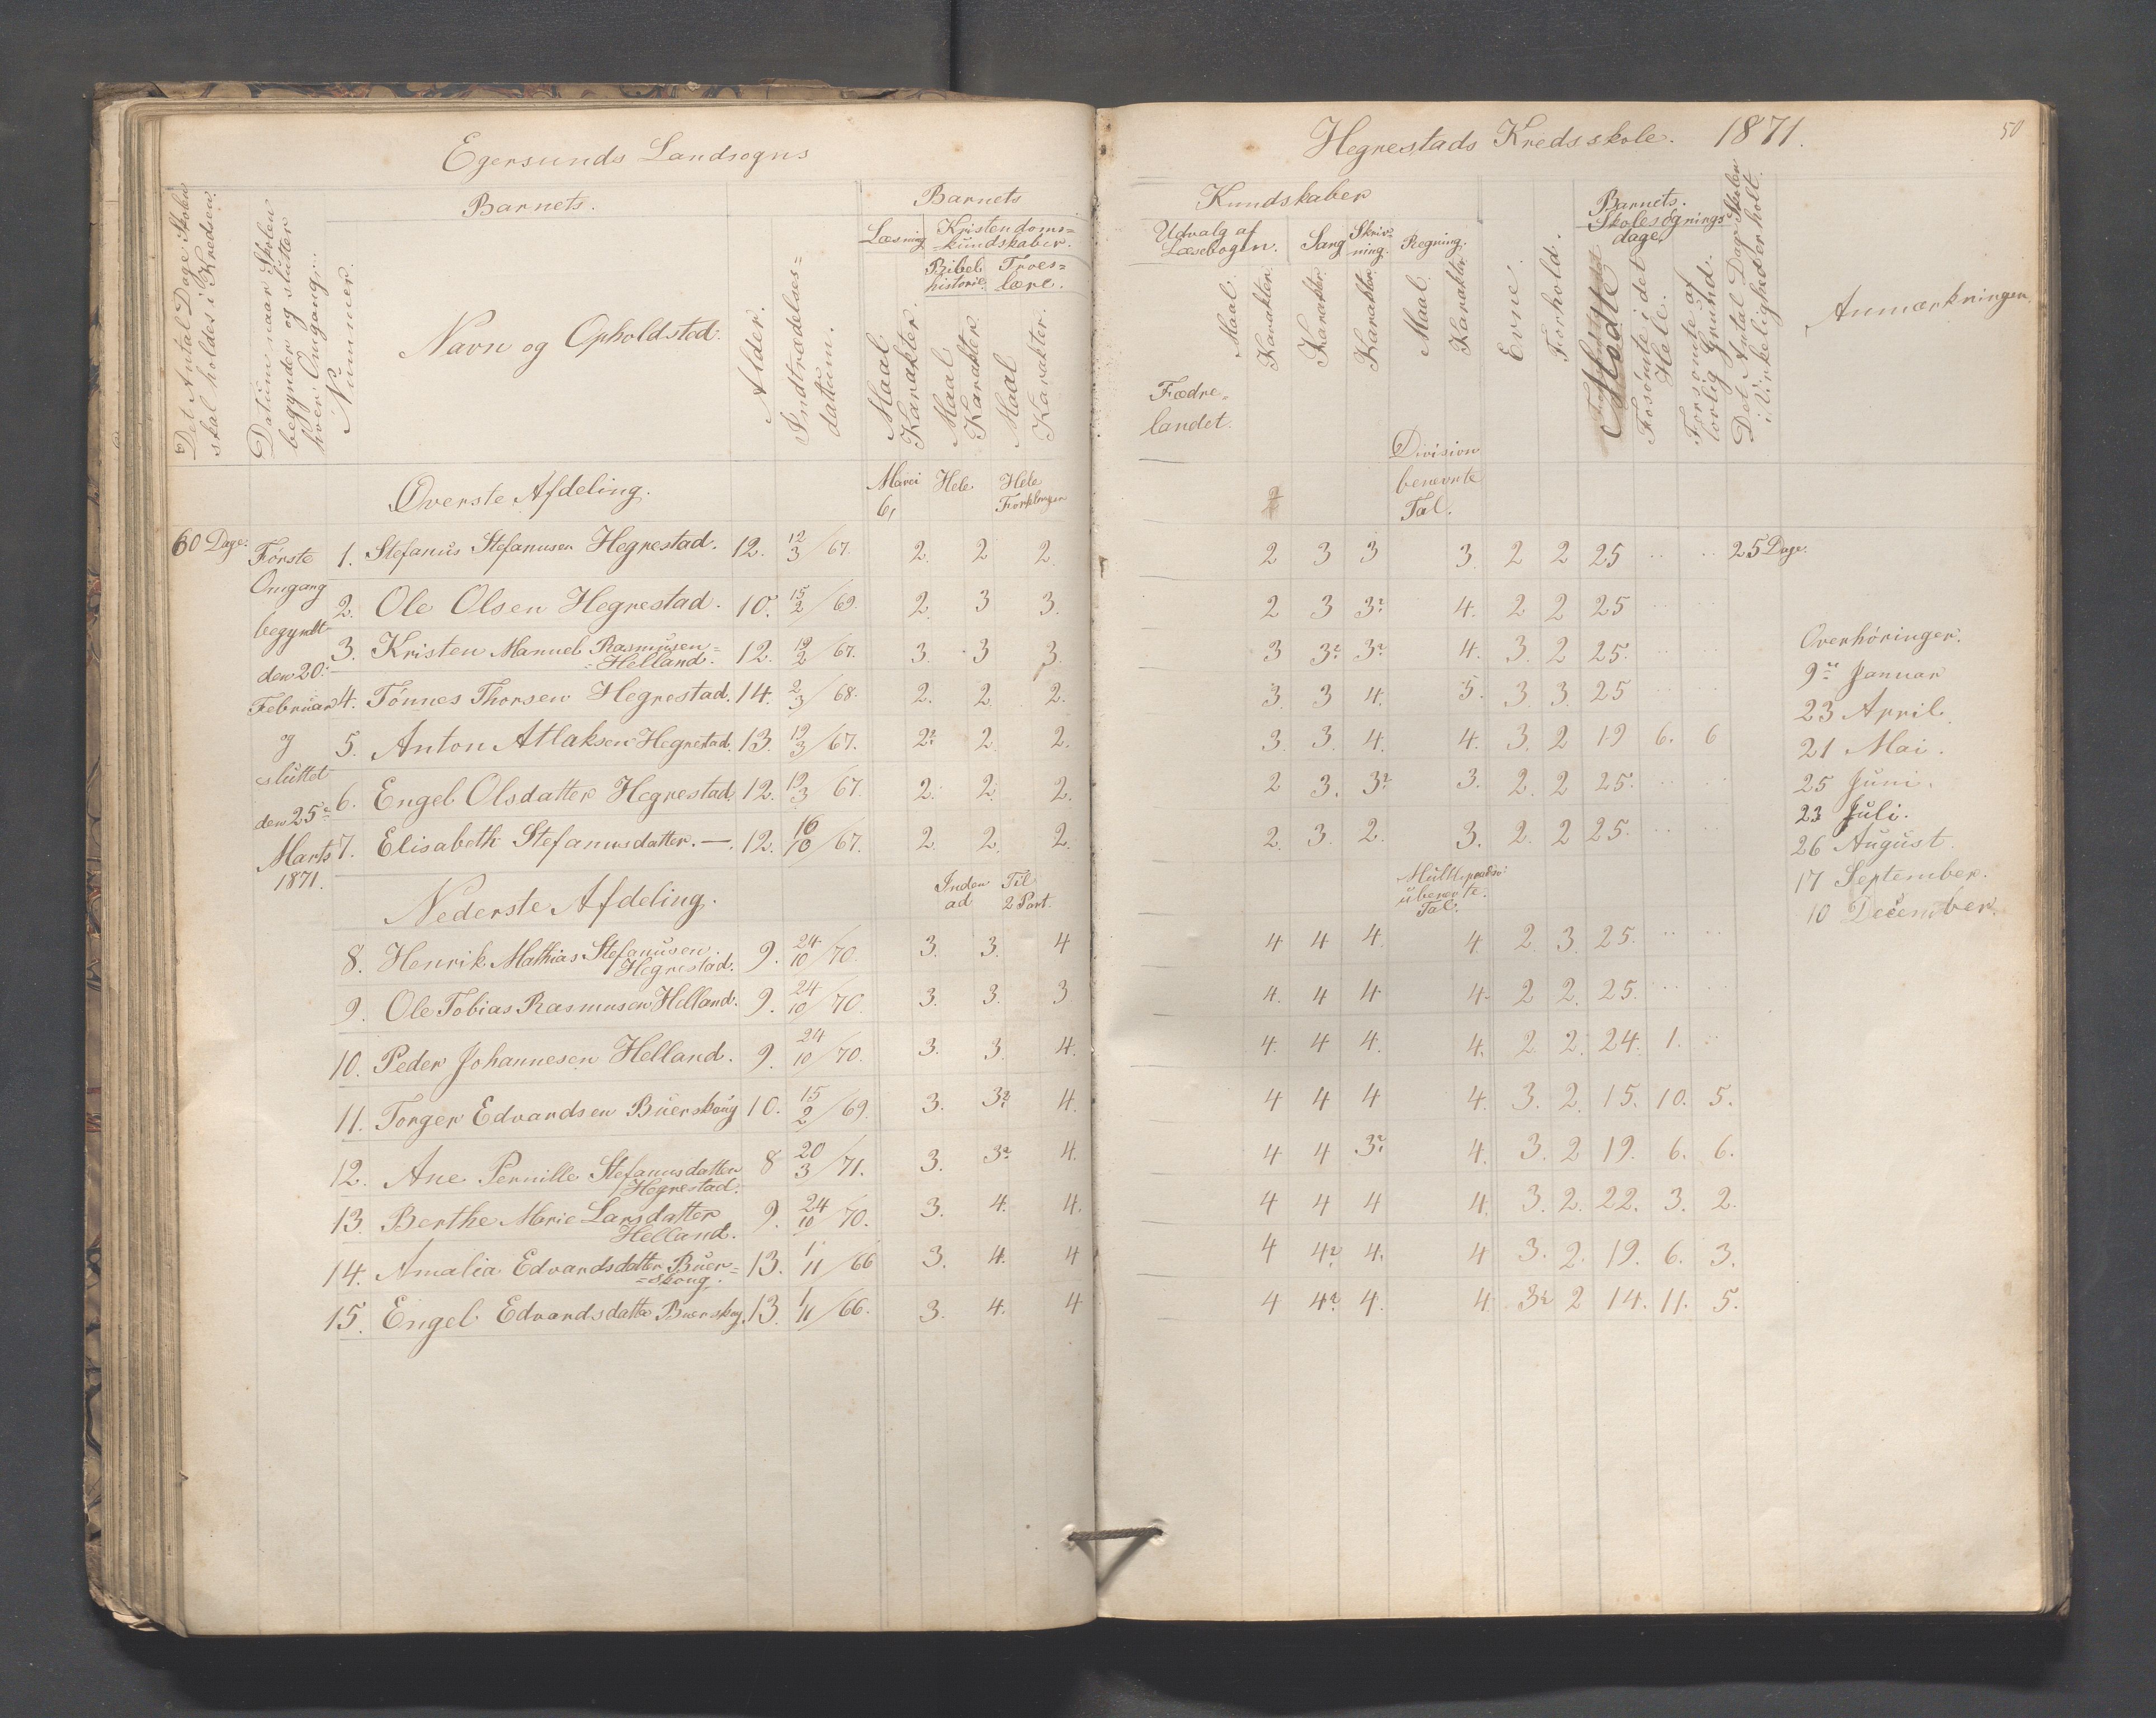 Egersunds Landsogns
Hegrestads Kredsskole. 1871.
50
Det Antal Dage Skolen
skal holdes i Kredsen.
Datum naar Skolen
begynder og slutter
hver Omgang.
Nummer.
Barnets.
Navn og Opholdsted.
Alder.
Indtrædelses=
datum.
Barnets
Læsning
Kristendoms=
=kundskaber.
Bibel
historie.
Troes=
lære.
Maal
Karakter.
Maal
Karakter.
Maal
Karakter.
Kundskaber
Udvalg af
Læsebogen.
Sang
Skriv=
ning.
Regning.
Maal.
Karakter.
Karakter.
Karakter.
Maal.
Karakter.
Evne.
Forhold.
Barnets.
Skolesøgnings
dage
Mødte
Forsømte i det
Hele.
Forsømte af
lovlig Grund.
Det Antal Dage Skolen
i Virkeligheden holdt.
Anmærkninger.
Fædre=
landet.
Division
benevnte
Tal.
Øverste Afdeling.
Hele
Hele
Forklringen
60 Dage:
Første
Omgang
begyndt
den 20:
Februar
og
sluttet
den 25de
Marts
1871.
1. Stefanus Stefanusen Hegrestad. 12. 12/3/67. 2. 2 2. 2 3 3 3. 2 2 25 .. .. 25 Dage.
2. Ole Olsen Hegrestad. 10. 15/2/69. 2. 3 3. 2 3 3². 4. 2 2 25 .. ..
3. Kristen Manuel Rasmusen=
=Helland. 12. 12/2/67. 3. 3 3. 3 3². 3² 4. 3. 2 25. .. ..
4. Tönnes Thorsen Hegrestad. 14. 2/3/68. 2. 2. 2. 3. 3 4. 5. 3 3. 25 .. ..
5. Anton Atlaksen Hegrestad. 13. 12/3/67. 2² 2. 2. 3. 3. 4. 4. 3. 2 19 6. 6
6. Engel Olsdatter Hegrestad. 12. 12/3/67. 2. 2. 2. 2 3. 3² 3. 2. 2 25. .. ..
7. Elisabeth Stefanusdatter. —. 12. 16/10/67. 2. 2. 2. 2. 3. 2. 3. 2. 2 25. .. ..
Nederste Afdeling.
Inden
ad
Til
2 Part.
Tal.
8. Henrik Mathias Stefanusen
Hegrestad. 9. 24/10/70. 3. 3. 4 4 4 4. 4. 2. 3. 25. .. ..
9. Ole Tobias Rasmusen Helland. 9. 24/10/70. 3. 3. 3 4. 4 4 4. 2 2. 25. .. ..
10. Peder Johannesen Helland. 9. 24/10/70. 3. 3. 4. 4. 4 4. 4. 2 2. 24. 1. ..
11. Torger Edvardsen Buerskoug 10. 15/2/69. 3. 3² 4. 4 4 4 4. 3. 2. 15. 10. 5.
12. Ane Pernille Stefanusdatter
Hegrestad. 8 20/3/71. 3. 3² 4. 4 4 3² 4. 3. 2 19. 6. 6.
13. Berthe Marie Larsdatter
Helland. 9. 24/10/70. 3. 4. 4. 4 4 4 4. 3. 2. 22. 3. 2.
14. Amalia Edvardsdatter Buer=
=skoug. 13. 1/11/66 3. 4. 4 4 4² 4. 4 3. 2. 19. 6. 3.
15. Engel Edvardsdatter Buerskog 13. 1/11/66. 3. 4. 4 4 4² 4. 4. 3² 2 14. 11. 5.
Overhöringer.
9de Januar
23 April.
21 Mai.
25 Juni.
23 Juli.
26 August.
17 September.
10 December.